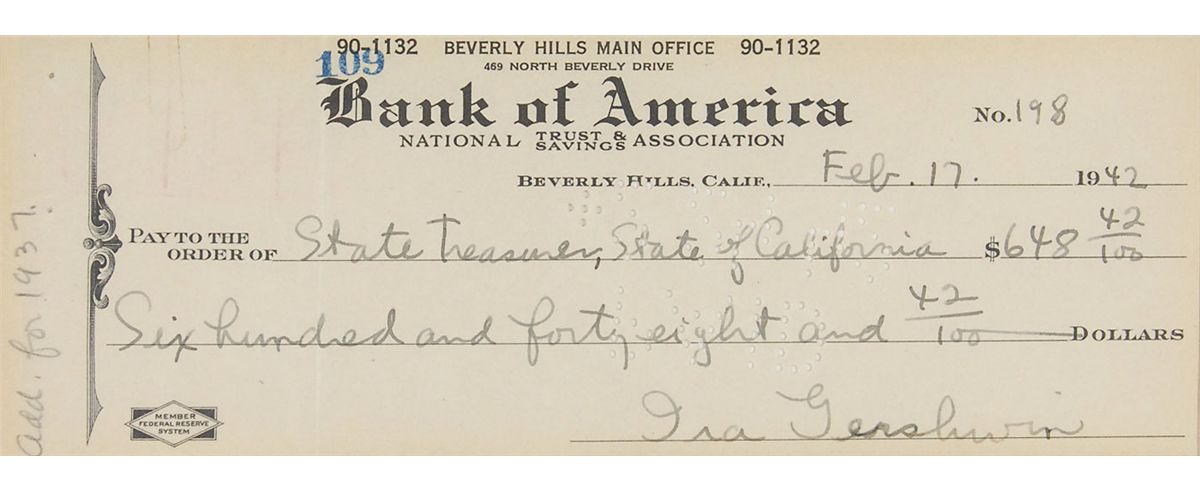 90-1132 BEVERLY HILLS MAIN OFFICE 90-1132
109
469 NORTH BEVERLY DRIVE
Bank of America
No. 198
NATIONAL TRUST & SAVINGS ASSOCIATION
BEVERLY HILLS, CALIF., Feb. 17. 1942
PAY TO THE ORDER OF State Treasurer, State of California $648 42/100
Six hundred and forty eight and 42/100 DOLLARS
MEMBER
FEDERAL RESERVE
SYSTEM
Ira Gershwin
add. for 1937.